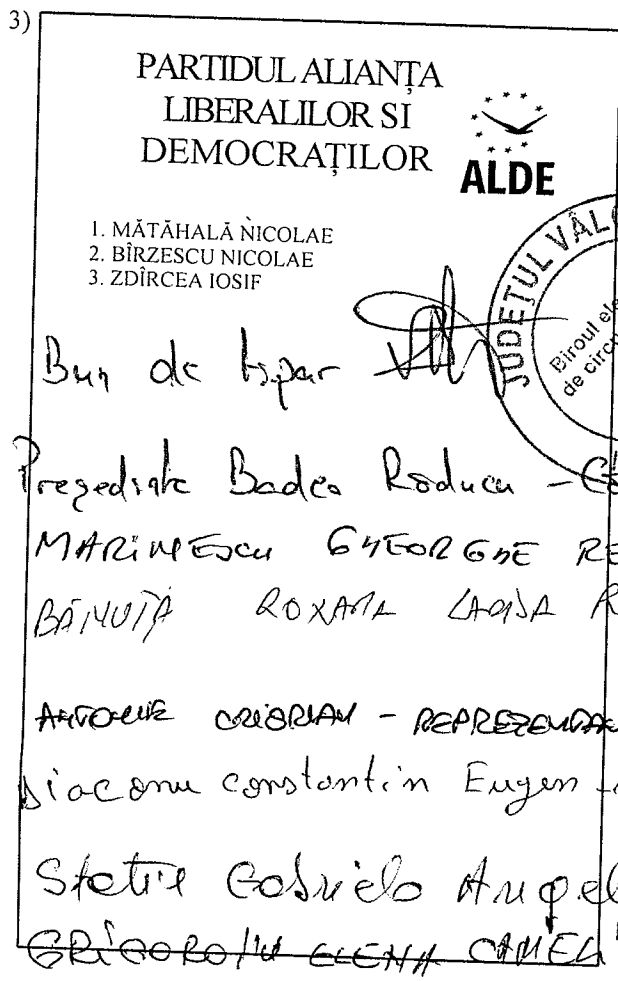 3)
PARTIDUL ALIANȚA
LIBERALILOR SI
DEMOCRAȚILOR
ALDE
1. MĂTĂHALĂ NICOLAE
2. BÎRZESCU NICOLAE
3. ZDÎRCEA IOSIF
JUDEȚUL VÂL
Biroul ele
de circu
Bun de tipar
Președinte Badea Raducu -
MARINESCU GHEORGHE RE
ROXANA
CIOBRIAN - REPREZENTAN
Diaconu Constantin Eugen -
Gabriela Angel
GRIGOROIU ELENA CAMEL